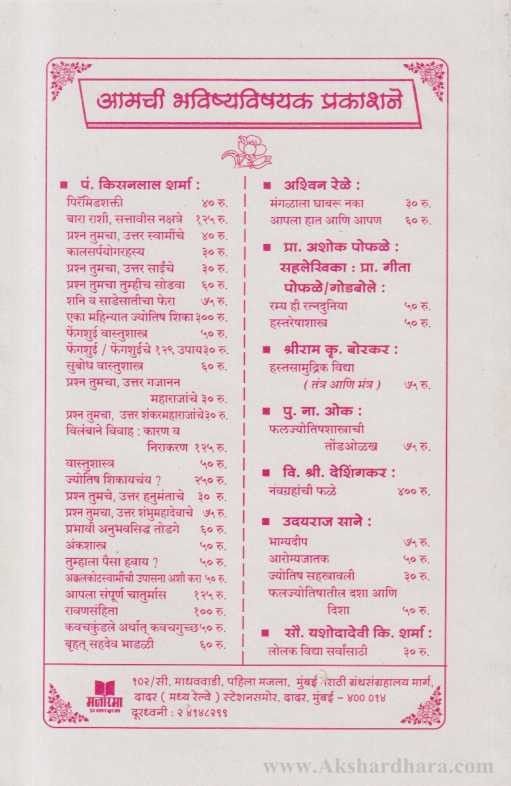 आमची भविष्यविषयक प्रकाशने
■ पं. किसनलाल शर्मा :
पिरॅमिडशक्ती ४० रु.
बारा राशी, सत्तावीस नक्षत्रे १२५ रु.
प्रश्न तुमचा, उत्तर स्वामींचे ४० रु.
कालसर्पयोगरहस्य ३० रु.
प्रश्न तुमचा, उत्तर साईंचे ३० रु.
प्रश्न तुमचा तुम्हीच सोडवा ६० रु.
शनि व साडेसातीचा फेरा ७५ रु.
एका महिन्यात ज्योतिष शिका ३०० रु.
फेंगशुई वास्तुशास्त्र ५० रु.
फेंगशुई / फेंगशुईचे १२९ उपाय ३० रु.
सुबोध वास्तुशास्त्र ६० रु.
प्रश्न तुमचा, उत्तर गजानन
महाराजांचे ३० रु.
प्रश्न तुमचा, उत्तर शंकरमहाराजांचे ३० रु.
विलंबाने विवाह : कारण व
निराकरण १२५ रु.
वास्तुशास्त्र ५० रु.
ज्योतिष शिकायचंय ? २५० रु.
प्रश्न तुमचे, उत्तर हनुमंताचे ३० रु.
प्रश्न तुमचा, उत्तर शंभुमहादेवाचे ७५ रु.
प्रभावी अनुभवसिद्ध तोडगे ६० रु.
अंकशास्त्र ५० रु.
तुम्हाला पैसा हवाय ? ५० रु.
अक्कलकोटस्वामींची उपासना अशी करा ५० रु.
आपला संपूर्ण चातुर्मास १२५ रु.
रावणसंहिता १०० रु.
कवचकुंडले अर्थात् कवचगुच्छ ५० रु.
बृहत् सहदेव भाडळी ६० रु.
■ अश्विन रेळे :
मंगळाला घाबरू नका ३० रु.
आपला हात आणि आपण ६० रु.
■ प्रा. अशोक पोफळे :
सहलेखिका : प्रा. गीता
पोफळे/गोडबोले :
रम्य ही रत्नदुनिया ५० रु.
हस्तरेषाशास्त्र ५० रु.
■ श्रीराम कृ. बोरकर :
हस्तसामुद्रिक विद्या
( तंत्र आणि मंत्र ) ७५ रु.
■ पु. ना. ओक :
फलज्योतिषशास्त्राची
तोंडओळख ७५ रु.
■ वि. श्री. देशिंगकर :
नवग्रहांची फळे ४०० रु.
■ उदयराज साने :
भाग्यदीप ७५ रु.
आरोग्यजातक ५० रु.
ज्योतिष सहस्त्रावली ३० रु.
फलज्योतिषातील दशा आणि
दिशा ५० रु.
■ सौ. यशोदादेवी कि. शर्मा :
लोलक विद्या सर्वांसाठी ३० रु.
मनोरमा
प्रकाशन
१०२/सी, माधववाडी, पहिला मजला, मुंबई मराठी ग्रंथसंग्रहालय मार्ग,
दादर ( मध्य रेल्वे ) स्टेशनसमोर, दादर, मुंबई – ४०० ०१४
दूरध्वनी : २ ४१४८२९९
www.Akshardhara.com